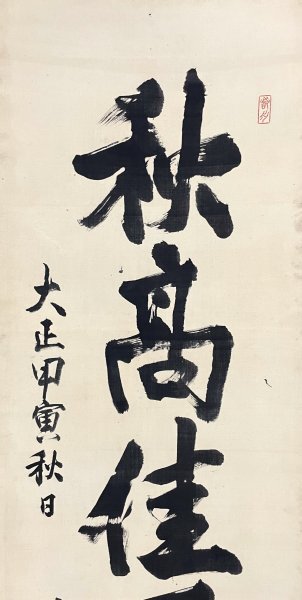 秋高佳
大正甲寅秋日